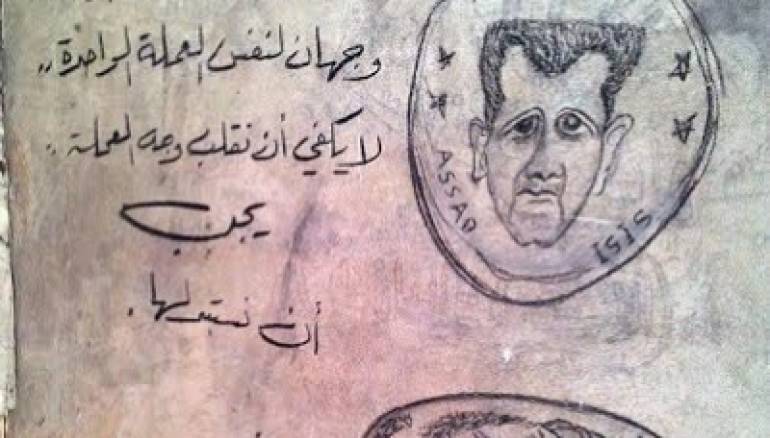 وجهان لنفس العملة الواحدة..
لا يكفي أن نقلب وجه العملة..
يجب
أن نستبدلها.
ASSAD
ISIS